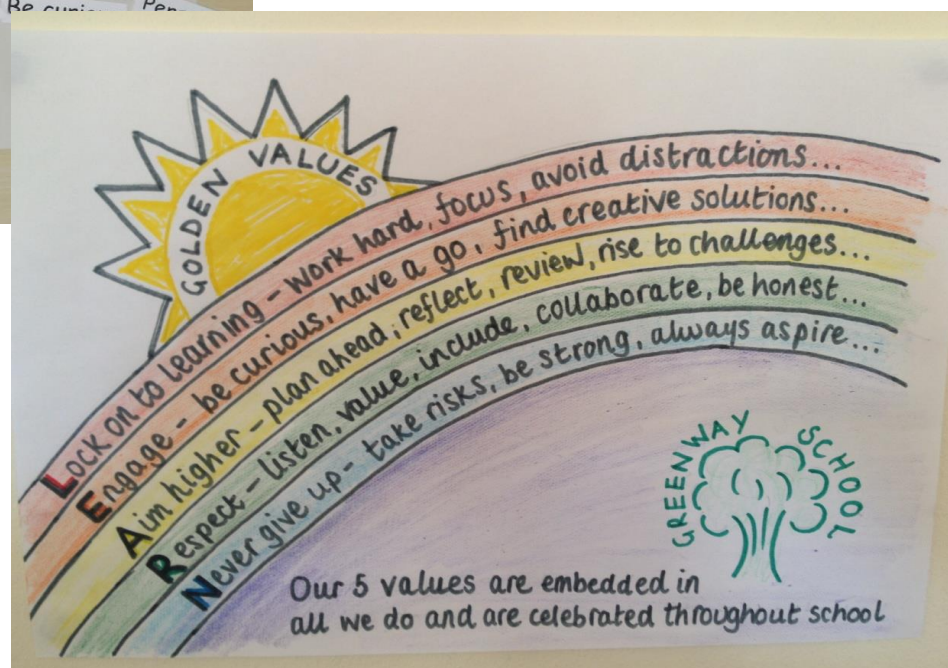 Be
GOLDEN VALUES
Lock on to Learning - work hard, focus, avoid distractions...
Engage - be curious, have a go, find creative solutions...
Aim higher - plan ahead, reflect, review, rise to challenges...
Respect - listen, value, include, collaborate, be honest...
Never give up - take risks, be strong, always aspire...
GREENWAY SCHOOL
Our 5 values are embedded in
all we do and are celebrated throughout school